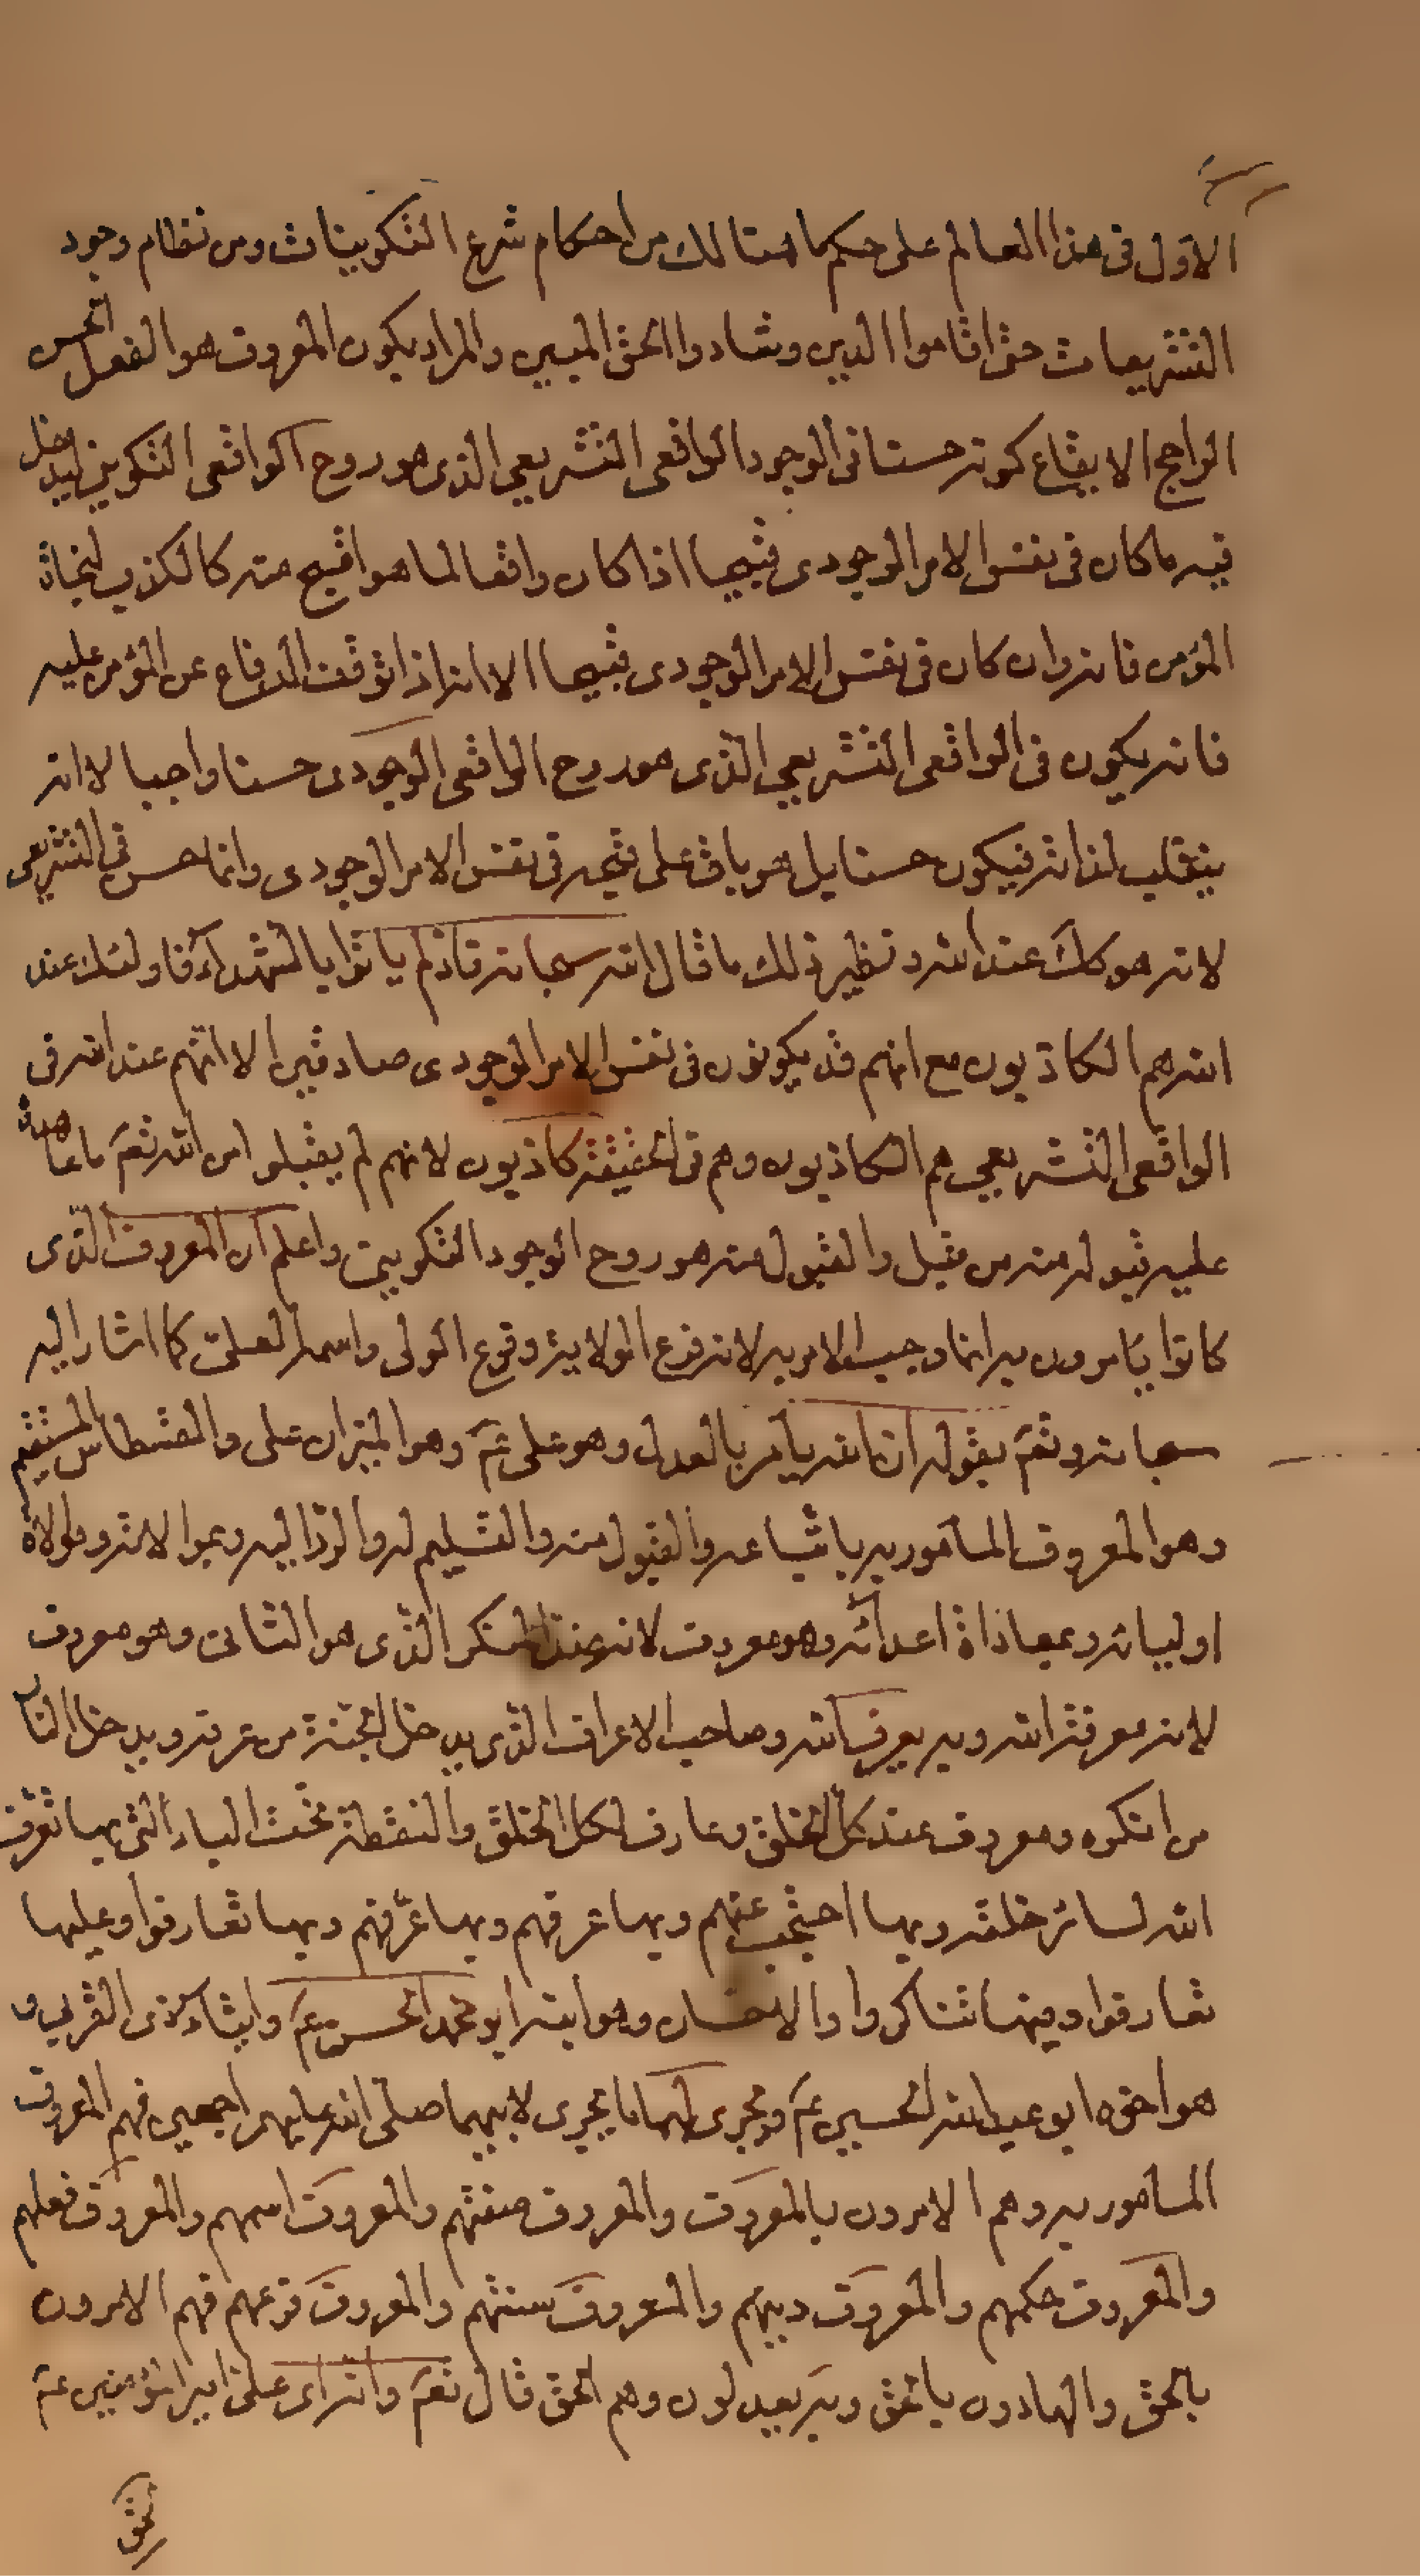 الاول فى هذا العالم على حكم ما هنالك من احكام شرع التكوينات ومن نظام وجود
التشريعات حتى اقاموا الدين وشادوا الحق المبين والمراد بكون المعروف هو الفعل الحسن
الراجح الايقاع كونه حسنا فى الوجود الواقعى التشريعى الذى هو روح الواقعى التكوينى ليدخل
فيه ما كان فى نفس الامر الوجودى قبيحا اذا كان دافعا لما هو اقبح منه كالكذب لنجاة
المؤمن فانه وان كان فى نفس الامر الوجودى قبيحا الا انه اذا توقف الدفاع عن المؤمن عليه
فانه يكون فى الواقعى التشريعى الذى هو روح الواقعى الوجودى حسنا واجبا لا انه
ينقلب لذاته فيكون حسنا بل هو باق على قبحه فى نفس الامر الوجودى وانما حسن فى التشريعى
لانه هو كك عند الله ونظير ذلك ما قال الله سبحانه فاذ لم ياتوا بالشهدآء فاولئك عند
الله هم الكاذبون مع انهم قد يكونون فى نفس الامر الوجودى صادقين الا انهم عند الله فى
الواقعى التشريعى هم الكاذبون وهم فى الحقيقة كاذبون لانهم لم يقبلوا من الله تعم ما عاهدهم
عليه قبوله منه من قبل والقبول منه هو روح الوجود التكوينى واعلم ان المعروف الذى
كانوا يامرون به انما وجب الامر به لانه فرع الولاية وفرع الولى واسمه العلى كما اشار اليه
سبحانه وتعم بقوله ان الله يامر بالعدل وهو على عم وهو الميزان على والقسطاس المستقيم
وهو المعروف المامور به باتباعه والقبول منه والتسليم له والرد اليه وبموالاته وموالاة
اوليائه وبمعاداة اعدائه وهو معروف لانه ضد المنكر الذى هو الثانى وهو معروف
لانه معرفة الله وبه يعرف الله وصاحب الاعراف الذى يدخل الجنة من عرفه ويدخل النار
من انكره ومعروف عند كل الخلق وعارف لكل الخلق والنقطة تحت الباء التى بها تعرف
الله لسائر خلقه وبها احتجب عنهم وبها عرفهم وبها عرّفهم وبها تعارفوا وعليها
تعارفوا ومنها تناكروا والاحسان وهو ابنه ابو محمد الحسن عم وايتاء ذى القربى و
هو اخوه ابو عبد الله الحسين عم ويجرى لهما ما يجرى لابيهما صلى الله عليهم اجمعين فهم المعروف
المامور به وهم الامرون بالمعروف والمعروف صفتهم والمعروف اسمهم والمعروف فعلهم
والمعروف حكمهم والمعروف دينهم والمعروف سنتهم والمعروف فرعهم فهم الامرون
بالحق والهادون بالحق وبه يعدلون وهم الحق قال تعم وانه اى على امير المؤمنين عم
لحق